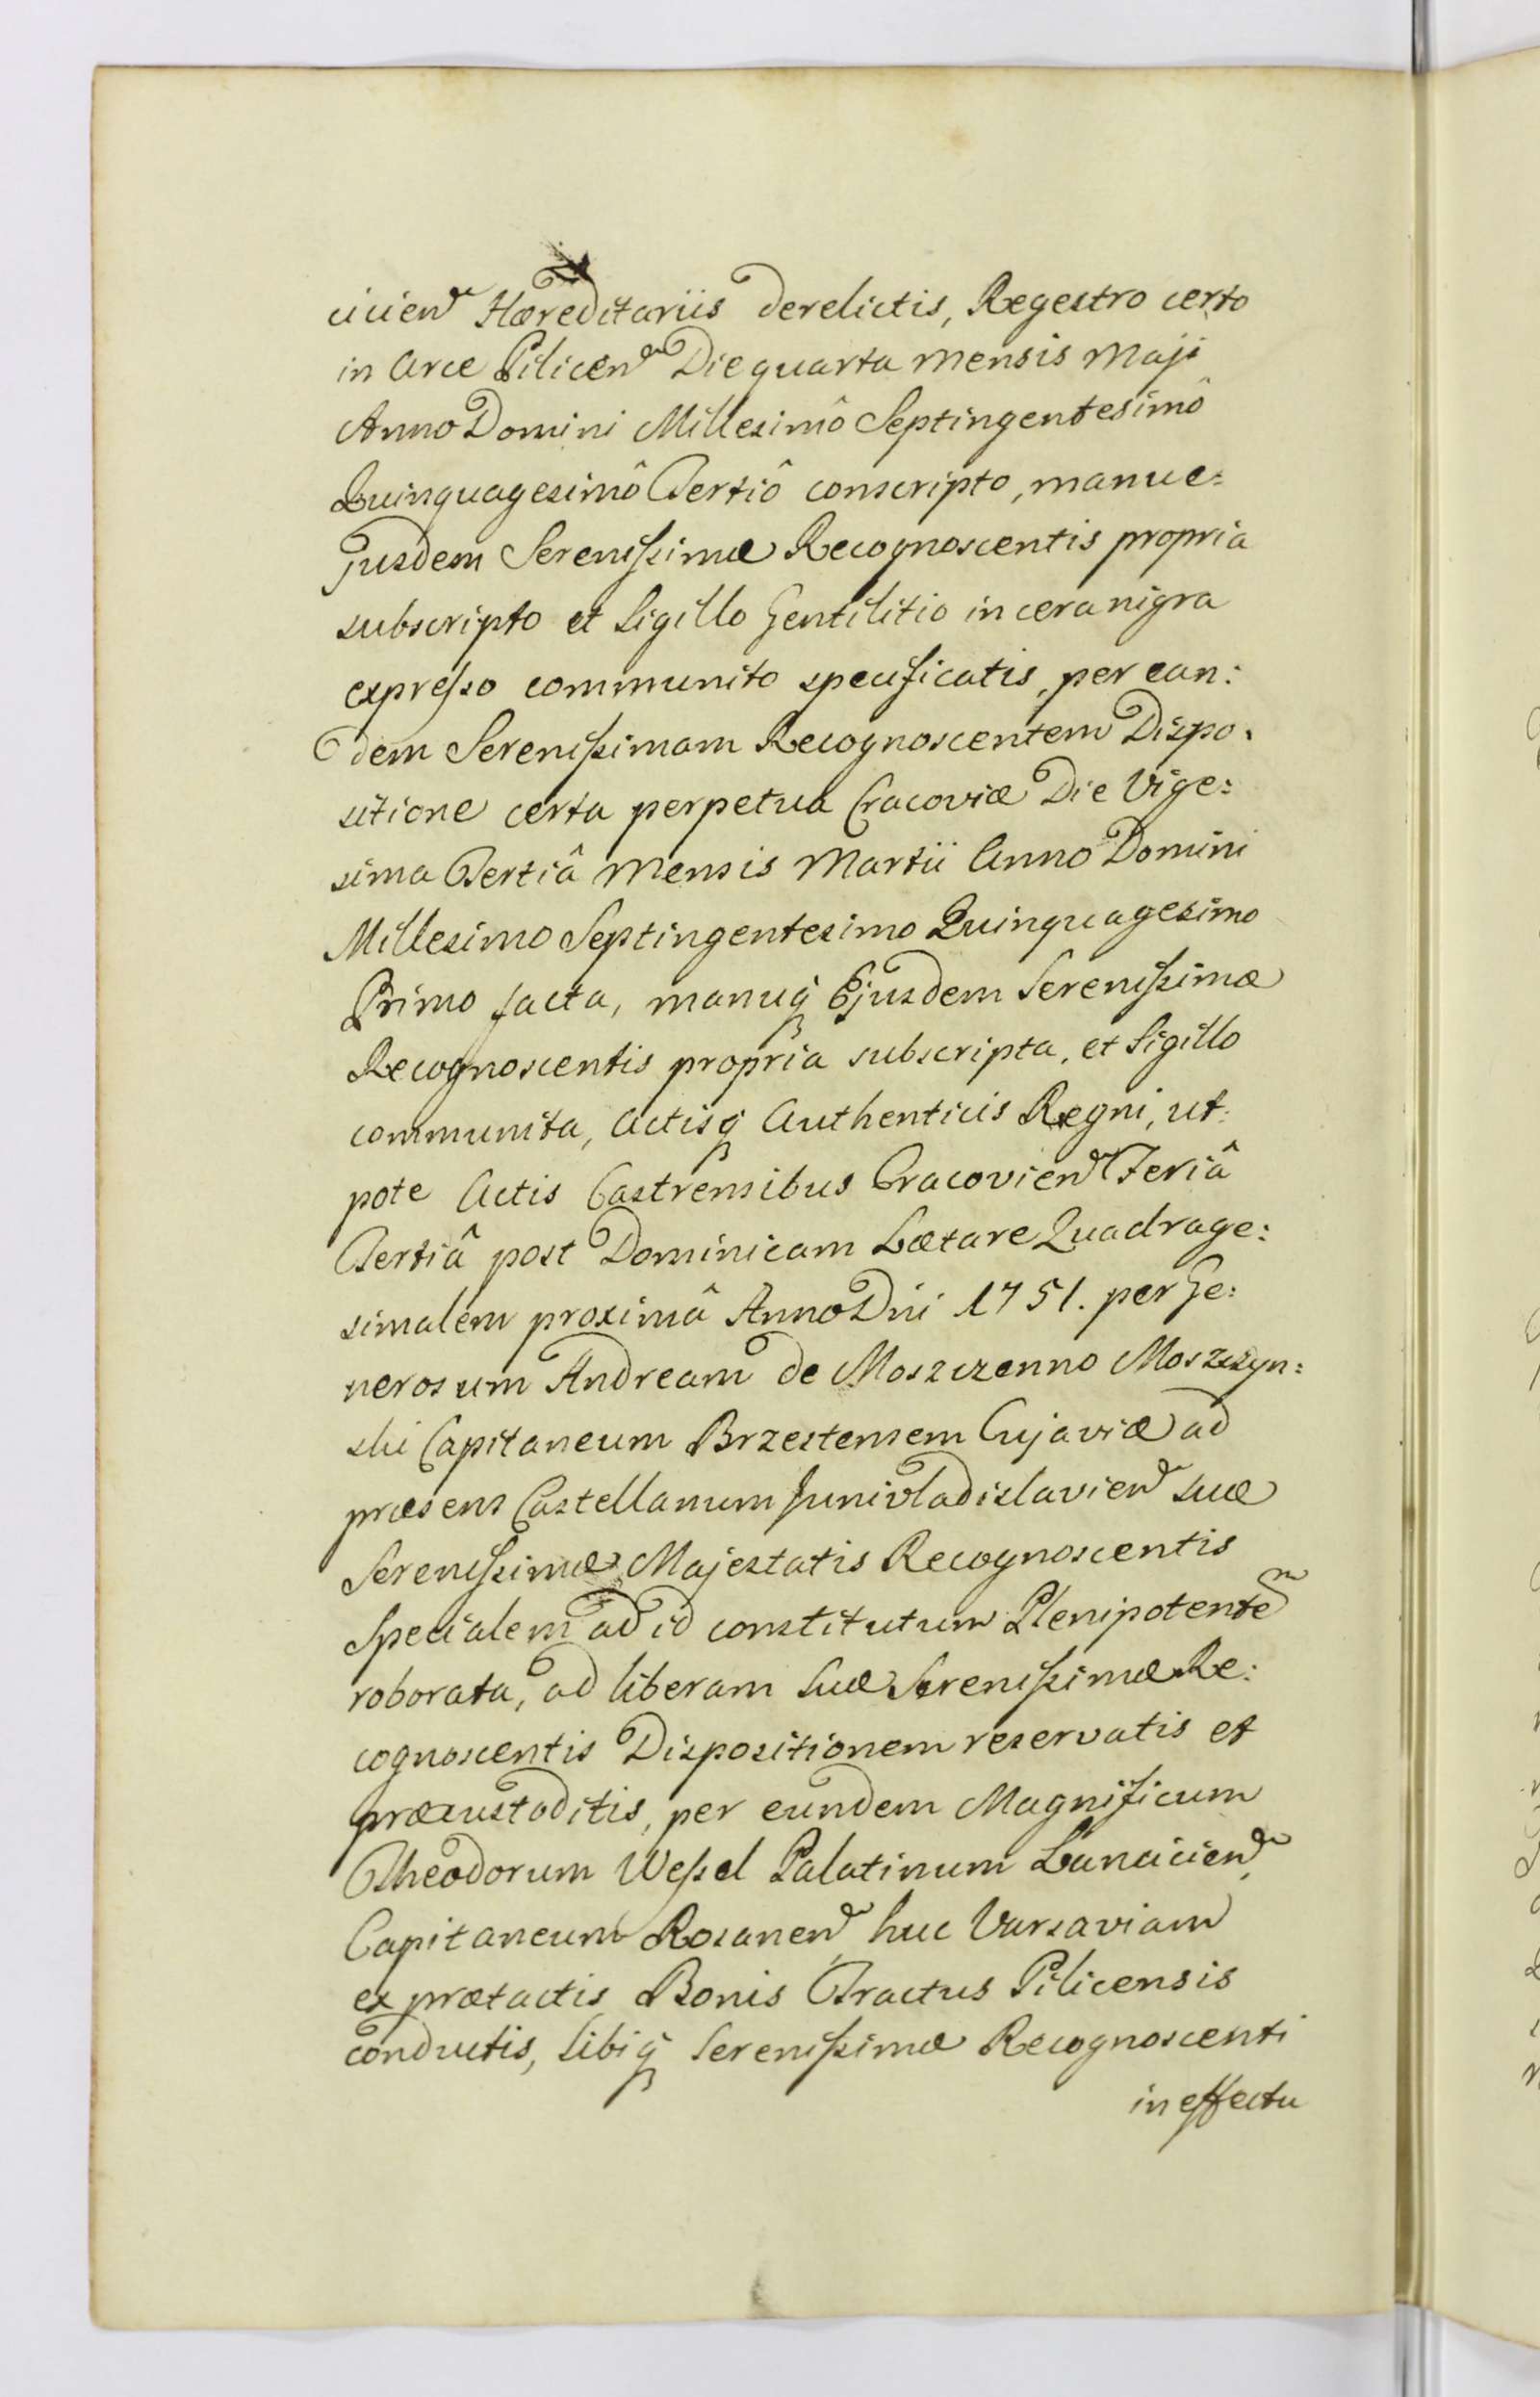 cicien Hæreditariis derelictis, Regestro certo
in Arce Pilicen Die quarta Mensis Maji
Anno Domini Millesimô Septingentesimô
Quinquagesimô Tertiô conscripto, manu e:
jusdem Serenissimæ Recognoscentis propria
subscripto et Sigillo Gentilitio in cera nigra
expresso communito specificatis, per ean:
dem Serenissimam Recognoscentem Dispo:
sitione certa perpetua Cracoviæ Die Vige:
sima Tertiâ Mensis Martii Anno Domini
Millesimo Septingentesimo Quinquagesimo
Primo facta, manuq Ejusdem Serenissimæ
Recognoscentis propria subscripta, et Sigillo
communita, Actisq Authenticis Regni, ut:
pote Actis Castrensibus Cracovien Feriâ
Tertiâ post Dominicam Lætare Quadrage:
simalem proximâ Anno Dni 1751. per Ge:
nerosum Andream de Moszczenno Moszczyn:
ski Capitaneum Brzestensem Cujaviæ ad
præsens Castellanum Junivladislavien Suæ
Serenissimæ Majestatis Recognoscentis
Specialem ad id constitutum Plenipotentem
roborata, ad liberam Suæ Serenissimæ Re:
cognoscentis Dispositionem reservatis et
præcustoditis, per eundem Magnificum
Theodorum Wessel Palatinum Lancicien,
Capitaneum Rosanen, huc Varsaviam
ex prætactis Bonis Tractus Pilicensis
conductis, Sibiq Serenissimæ Recognoscenti
in effectu